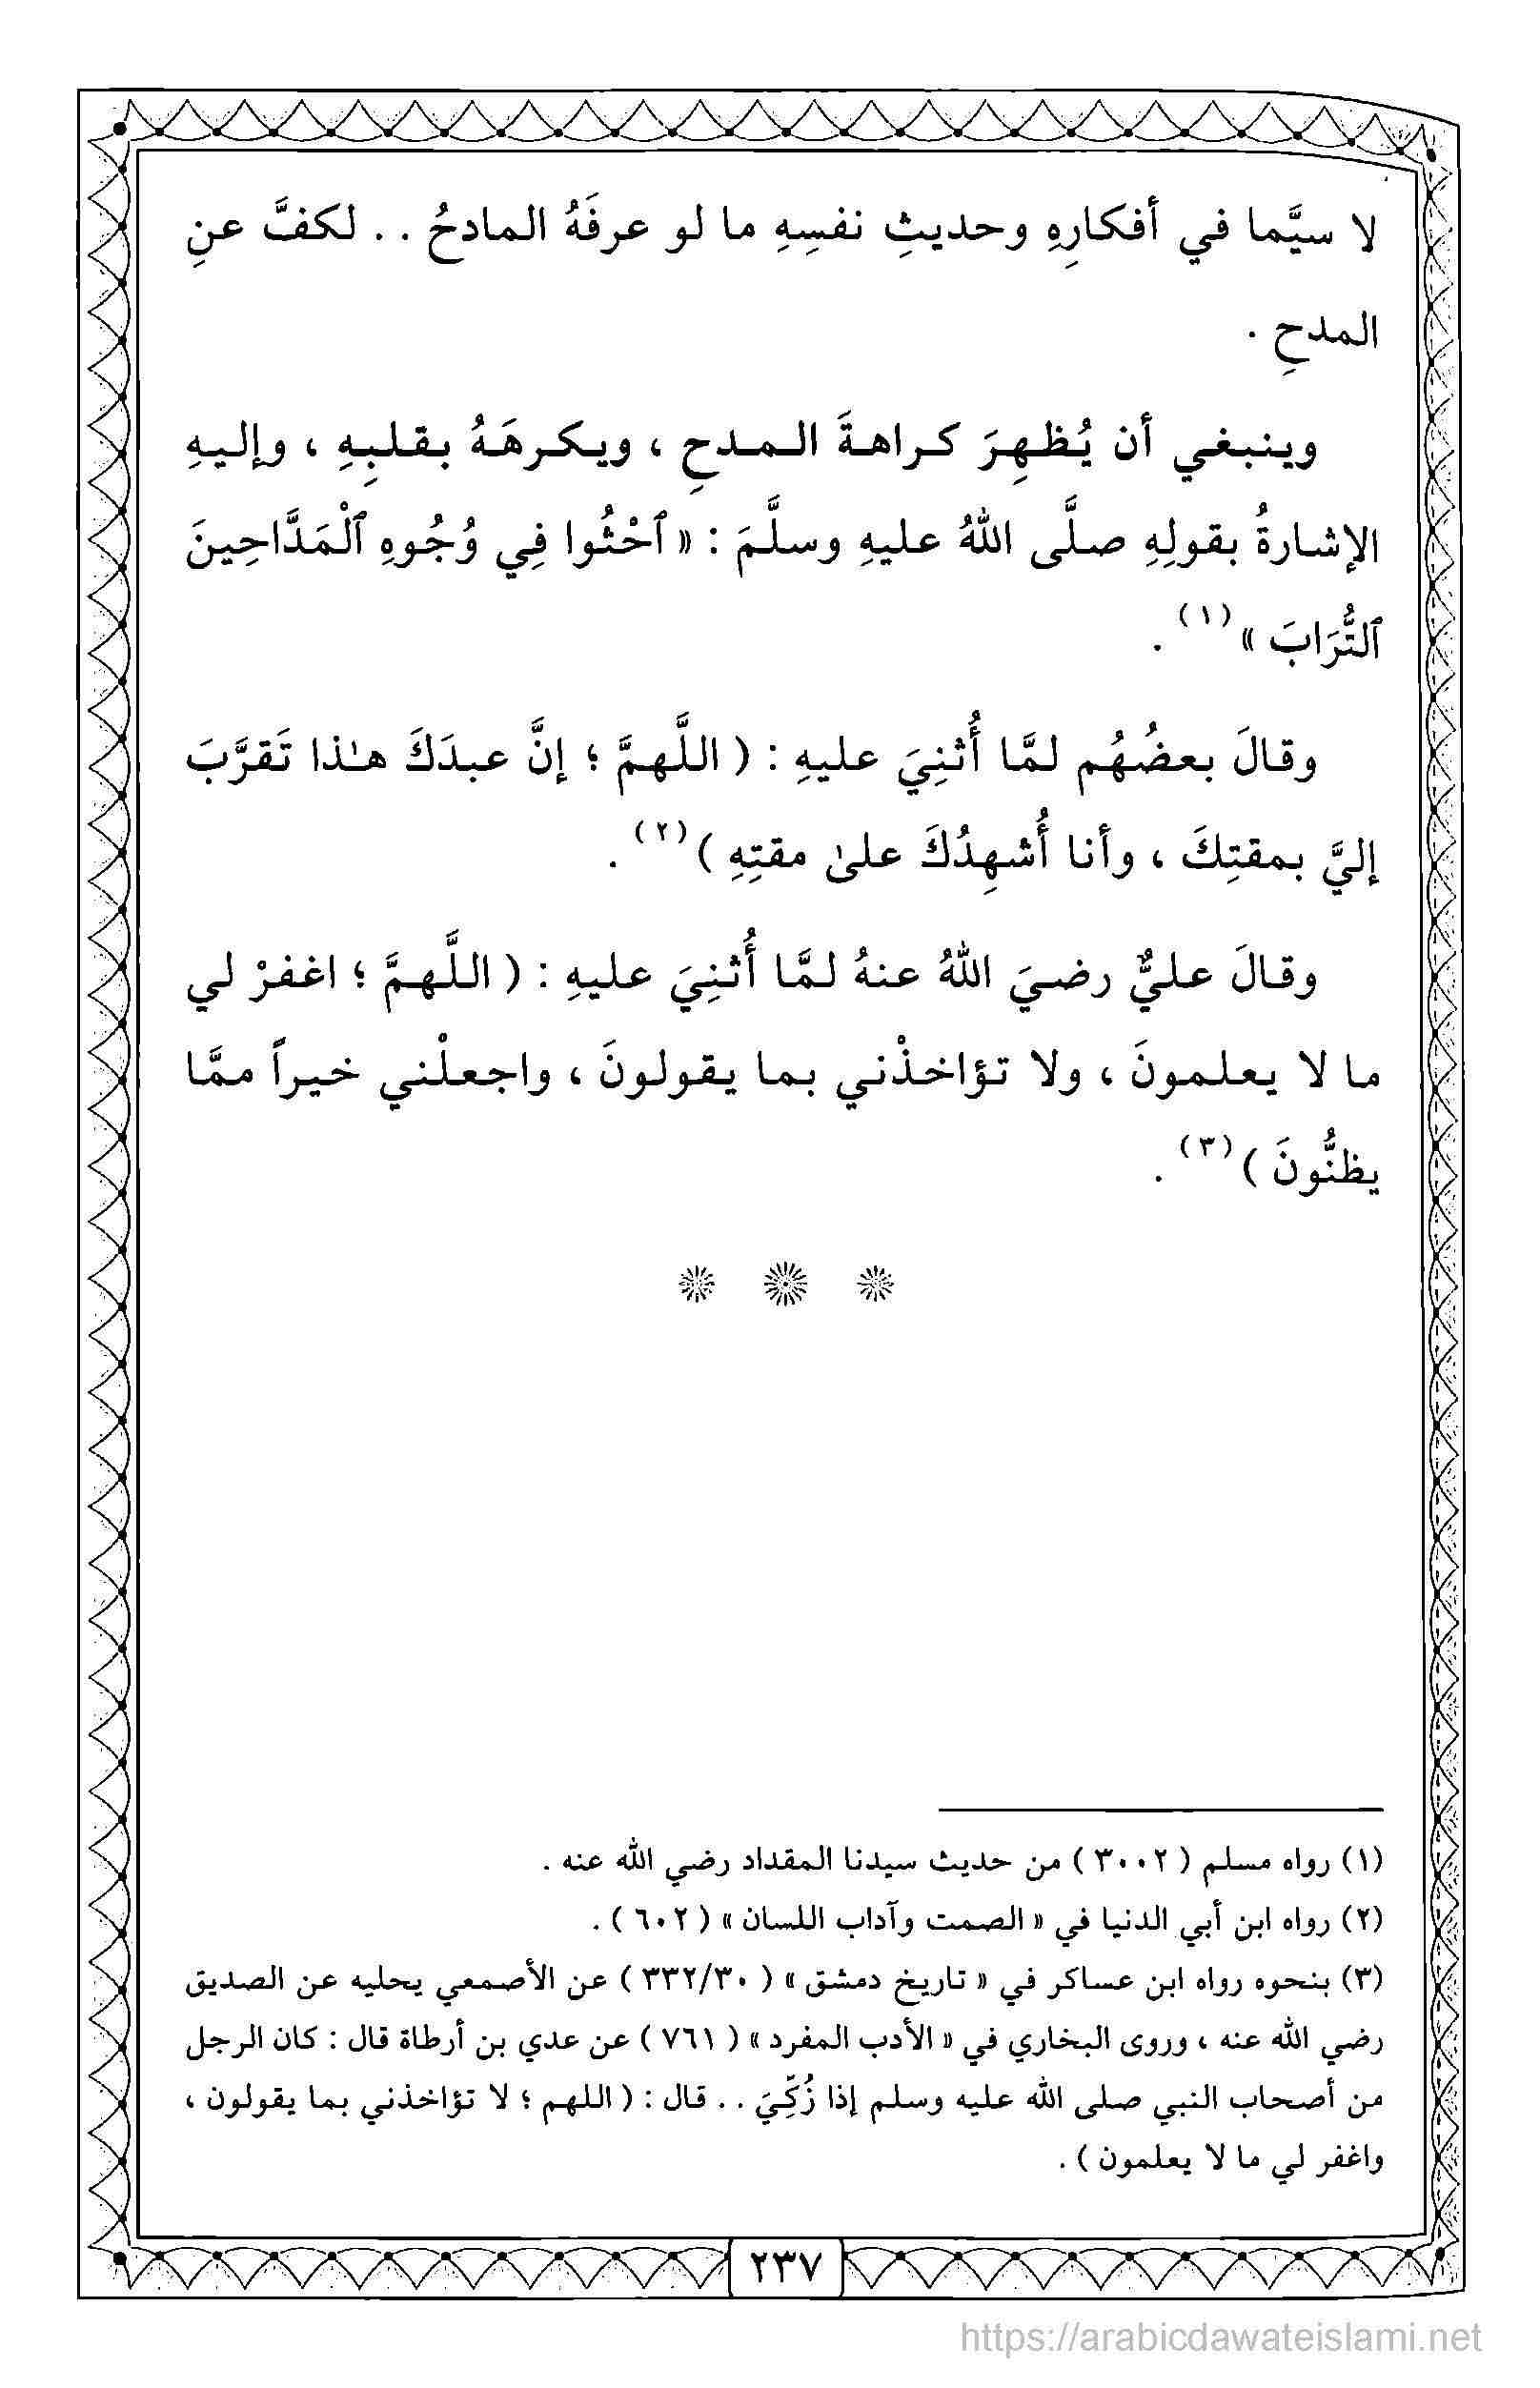 لا سيَّما في أفكارِهِ وحديثِ نفسِهِ ما لو عرفَهُ المادحُ . . لكفَّ عنِ
المدحِ .
وينبغي أن يُظهِرَ كراهةَ المدحِ ، ويكرهَهُ بقلبِهِ ، وإليهِ
الإشارةُ بقولِهِ صلَّى اللهُ عليهِ وسلَّمَ : « ٱحْثُوا فِي وُجُوهِ ٱلْمَدَّاحِينَ
ٱلتُّرَابَ »(١) .
وقالَ بعضُهُم لمَّا أُثنِيَ عليهِ : ( اللَّهمَّ ؛ إنَّ عبدَكَ هـٰذا تَقرَّبَ
إليَّ بمقتِكَ ، وأنا أُشهِدُكَ علىٰ مقتِهِ )(٢) .
وقالَ عليٌّ رضيَ اللهُ عنهُ لمَّا أُثنِيَ عليهِ : ( اللَّهمَّ ؛ اغفرْ لي
ما لا يعلمونَ ، ولا تؤاخذْني بما يقولونَ ، واجعلْني خيراً ممَّا
يظنُّونَ )(٣) .
(١) رواه مسلم ( ٣٠٠٢ ) من حديث سيدنا المقداد رضي الله عنه .
(٢) رواه ابن أبي الدنيا في « الصمت وآداب اللسان » ( ٦٠٢ ) .
(٣) بنحوه رواه ابن عساكر في « تاريخ دمشق » ( ٣٣٢/٣٠ ) عن الأصمعي يحليه عن الصديق
رضي الله عنه ، وروى البخاري في « الأدب المفرد » ( ٧٦١ ) عن عدي بن أرطاة قال : كان الرجل
من أصحاب النبي صلى الله عليه وسلم إذا زُكِّيَ . . قال : ( اللهم ؛ لا تؤاخذني بما يقولون ،
واغفر لي ما لا يعلمون ) .
٢٣٧
https://arabicdawateislami.net